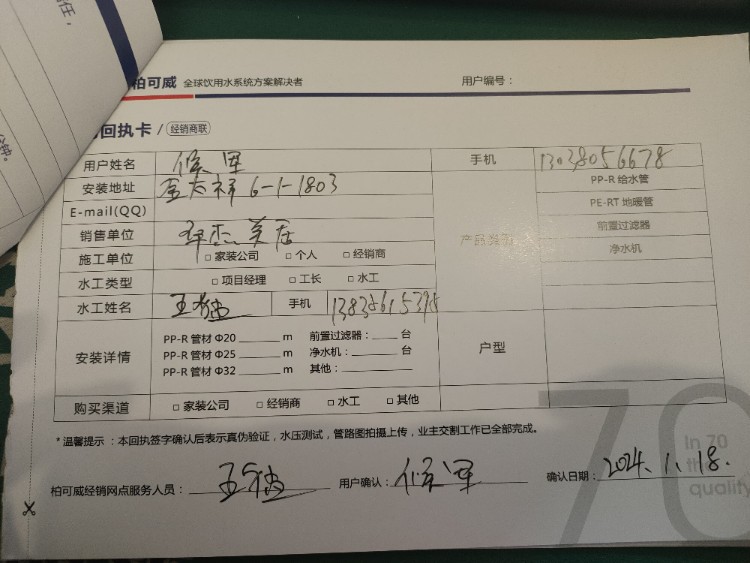 任，
柏可威 全球饮用水系统方案解决者 用户编号：
回执卡 / 经销商联
用户姓名 侯军 手机 13038056678
安装地址 6-1-1803 PP-R 给水管
E-mail(QQ) PE-RT 地暖管
销售单位 美居 产品类别 前置过滤器
施工单位 □ 家装公司 □ 个人 □ 经销商 净水机
水工类型 □ 项目经理 □ 工长 □ 水工
水工姓名 王 手机
安装详情 PP-R 管材 Φ20 m 前置过滤器： 台 户型
PP-R 管材 Φ25 m 净水机： 台
PP-R 管材 Φ32 m 其他：
购买渠道 □ 家装公司 □ 经销商 □ 水工 □ 其他
* 温馨提示：本回执签字确认后表示真伪验证，水压测试，管路图拍摄上传，业主交割工作已全部完成。
柏可威经销网点服务人员： 王 用户确认： 侯军 确认日期： 2024.1.18.
70
In 70
quality